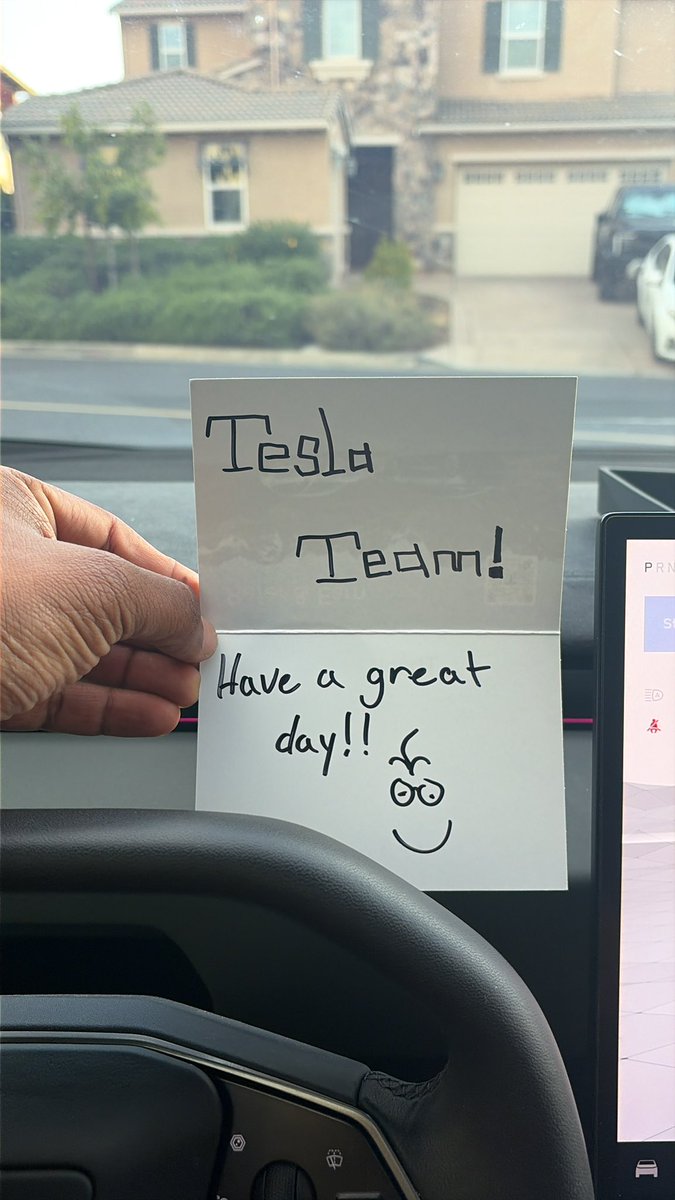 Tesla
Team!
Have a great
day!!
PRN